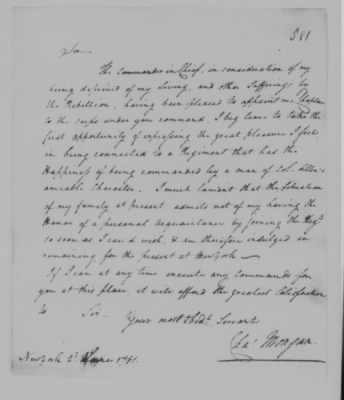 581
Sir
The Commander in Chief, in consideration of my
being deprived of my Living, and other Sufferings by
the Rebellion, having been pleased to appoint me Chaplain
to the Corps under your command, I beg leave to take the
first opportunity of expressing the great pleasure I feel
in being connected to a Regiment that has the
Happiness of being commanded by a man of Col. Allen's
amiable Character. I much lament that the Situation
of my family at present admits not of my having the
Honor of a personal Acquaintance by joining the Regt.
so soon as I could wish, & am therefore indulged in
remaining for the present at New York —
If I can at any time execute any Commands for
you at this place, it will afford the greatest Satisfaction
to Sir —
Your most Obedt. Servant
Chas. Morgan.
New York 2d June 1781.